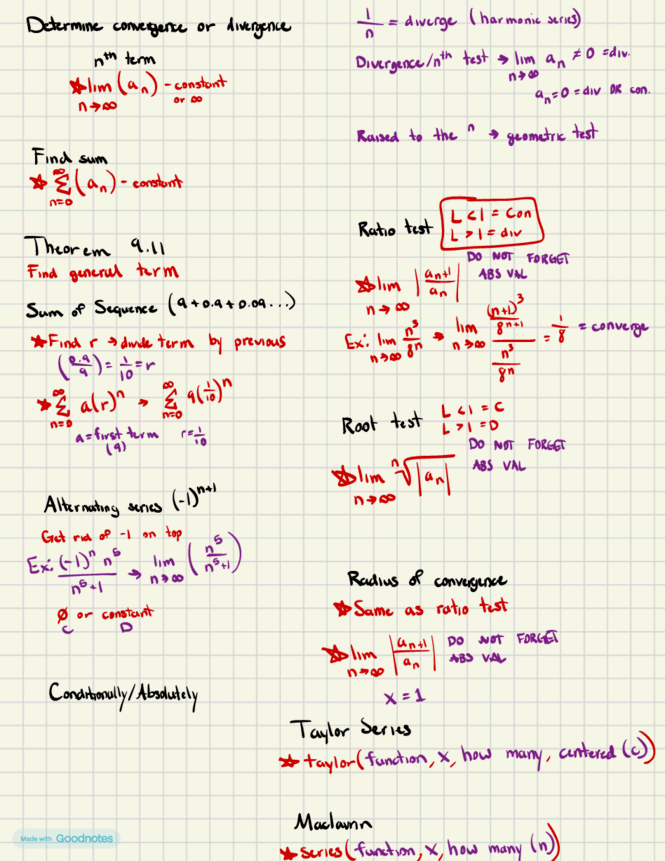 Determine convergence or divergence
nth term
★ lim n→∞ (aₙ) - constant or ∞
Find sum
★ ∞ Σ n=0 (aₙ) - constant
Theorem 9.11
Find general term
Sum of Sequence (9+0.9+0.09...)
★ Find r → divide term by previous
(0.9/9) = 1/10 = r
★ ∞ Σ n=0 a(r)ⁿ → ∞ Σ n=0 9(1/10)ⁿ
a = first term r = 1/10
(9)
Alternating series (-1)ⁿ⁺¹
Get rid of -1 on top
Ex: (-1)ⁿ n⁵ / n⁵+1 → lim n→∞ (n⁵ / n⁵+1)
Ø or constant
C D
Conditionally/Absolutely
1/n = diverge (harmonic series)
Divergence/nth test → lim n→∞ aₙ ≠ 0 = div.
aₙ = 0 = div OR con.
Raised to the n → geometric test
Ratio test
L < 1 = Con
L > 1 = div
DO NOT FORGET
ABS VAL
★ lim n→∞ |aₙ₊₁/aₙ|
Ex: lim n→∞ n³/8n → lim n→∞ ((n+1)³/8ⁿ⁺¹)/(n³/8n) = 1/8 = converge
Root test
L < 1 = C
L > 1 = D
DO NOT FORGET
ABS VAL
★ lim n→∞ ⁿ√|aₙ|
Radius of convergence
★ Same as ratio test
★ lim n→∞ |aₙ₊₁/aₙ| DO NOT FORGET
ABS VAL
x = 1
Taylor Series
★ taylor(function, x, how many, centered (c))
Maclaurin
★ series(function, x, how many (n))
Made with Goodnotes